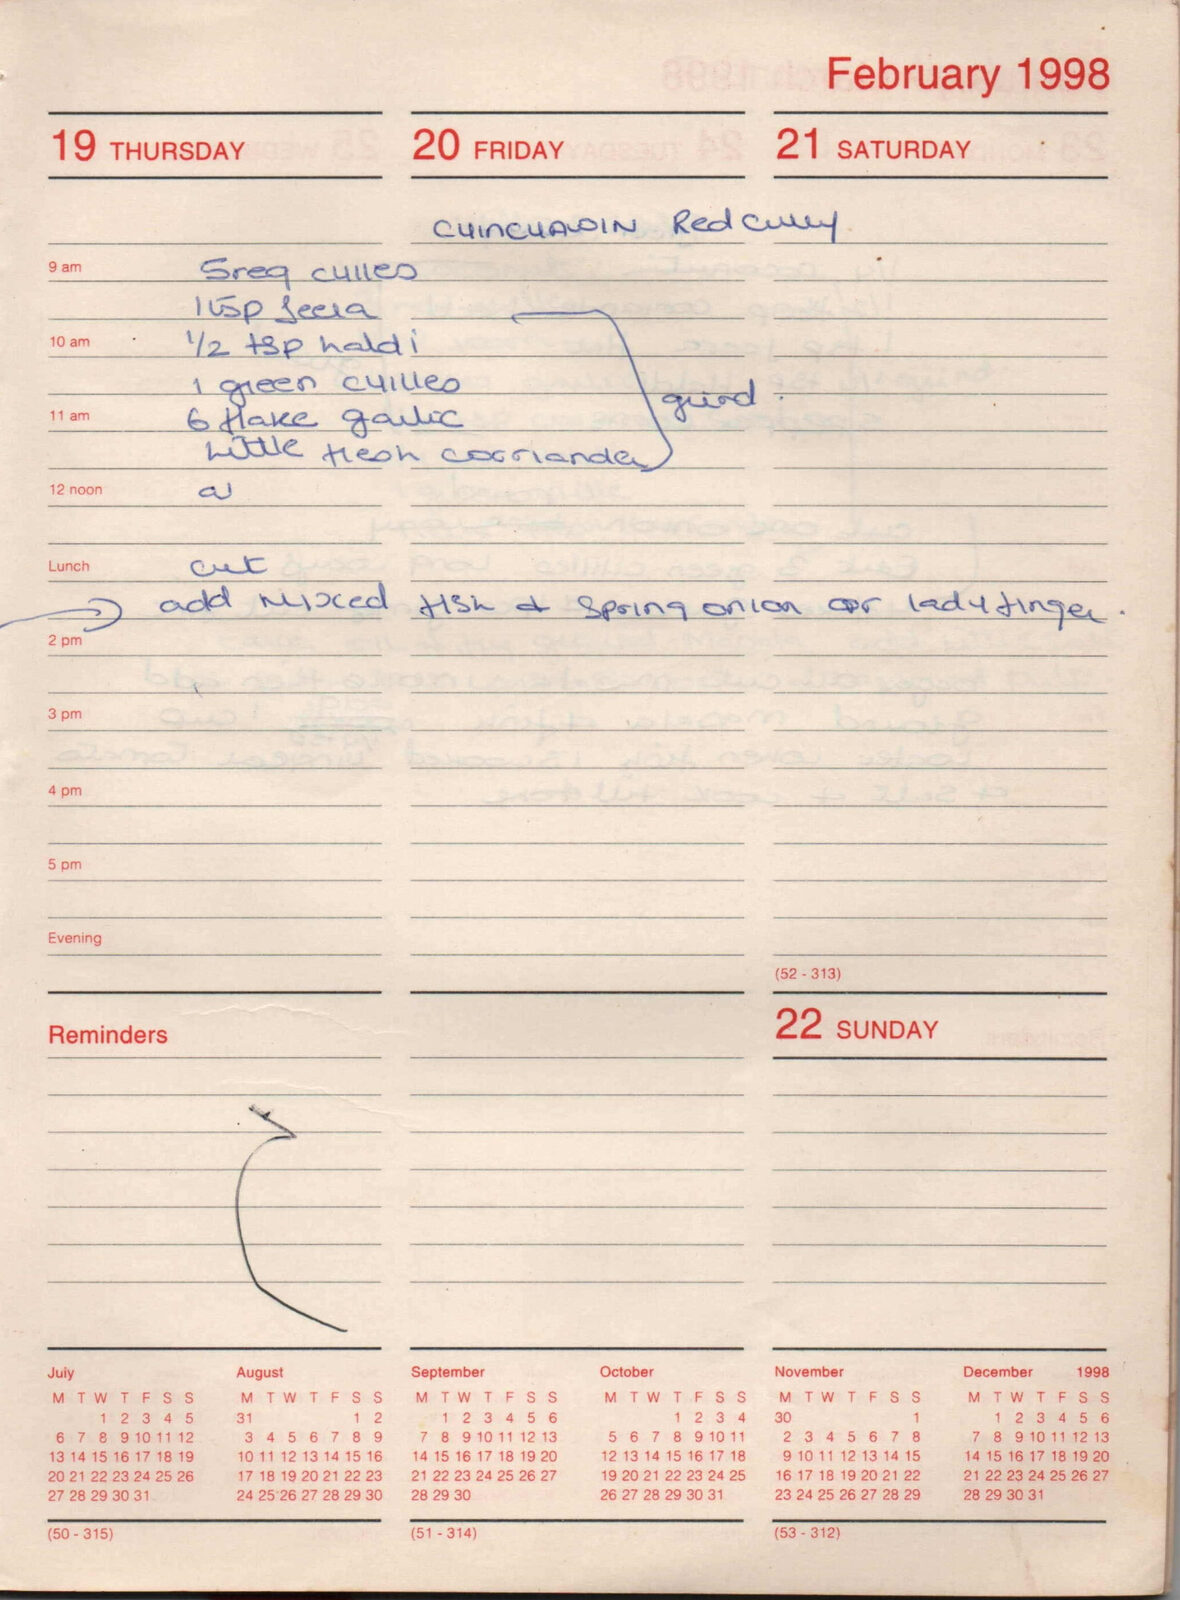 February 1998
19 THURSDAY
20 FRIDAY
21 SATURDAY
Red Curry
9 am
5 red chilles
1 tsp Jeera
10 am
1/2 tsp haldi
1 green chilles
11 am
6 flake garlic
grind.
Little fresh corriander
12 noon
Lunch
cut
add mixed fish + spring onion or ladyfinger.
2 pm
3 pm
4 pm
5 pm
Evening
(52 - 313)
Reminders
22 SUNDAY
July
M T W T F S S
1 2 3 4 5
6 7 8 9 10 11 12
13 14 15 16 17 18 19
20 21 22 23 24 25 26
27 28 29 30 31
(50 - 315)
August
M T W T F S S
31 1 2
3 4 5 6 7 8 9
10 11 12 13 14 15 16
17 18 19 20 21 22 23
24 25 26 27 28 29 30
September
M T W T F S S
1 2 3 4 5 6
7 8 9 10 11 12 13
14 15 16 17 18 19 20
21 22 23 24 25 26 27
28 29 30
(51 - 314)
October
M T W T F S S
1 2 3 4
5 6 7 8 9 10 11
12 13 14 15 16 17 18
19 20 21 22 23 24 25
26 27 28 29 30 31
November
M T W T F S S
30 1
2 3 4 5 6 7 8
9 10 11 12 13 14 15
16 17 18 19 20 21 22
23 24 25 26 27 28 29
(53 - 312)
December 1998
M T W T F S S
1 2 3 4 5 6
7 8 9 10 11 12 13
14 15 16 17 18 19 20
21 22 23 24 25 26 27
28 29 30 31